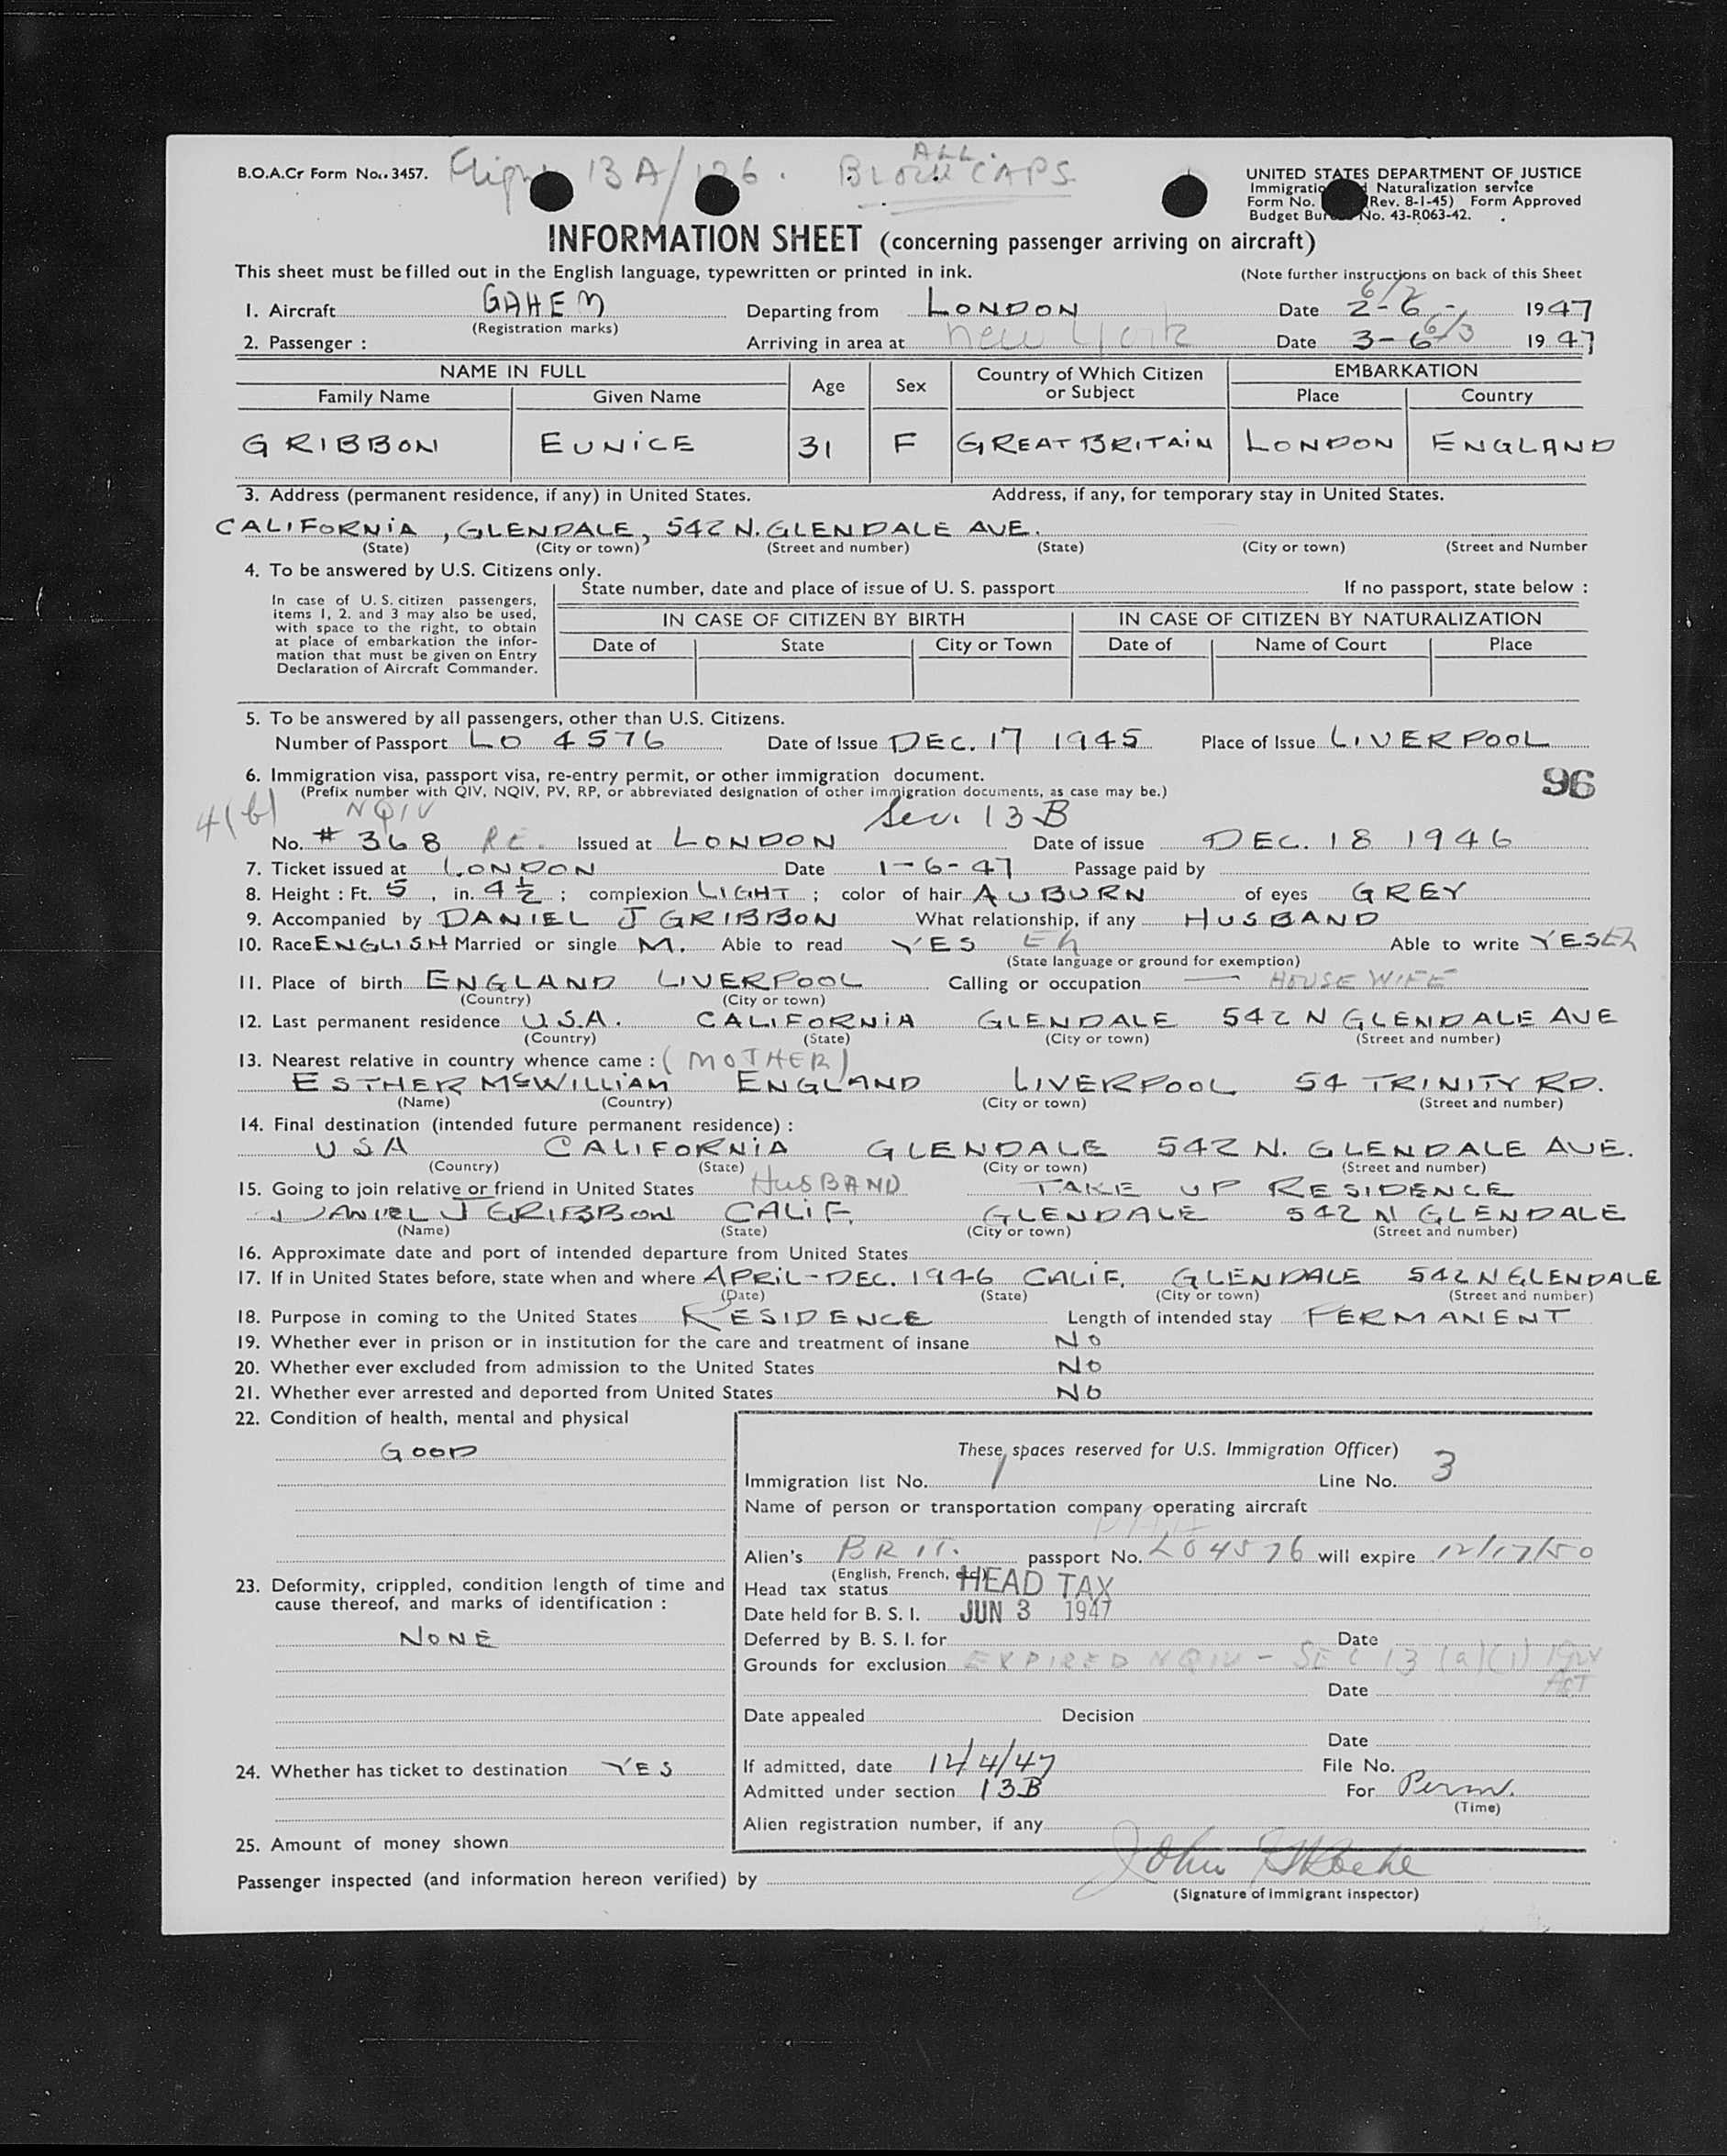 B.O.A.Cr Form No. 3457. Flight BA/126. ALL BLOCK CAPS
UNITED STATES DEPARTMENT OF JUSTICE
Immigration Naturalization service
Form No. (Rev. 8-1-45) Form Approved
Budget Bureau No. 43-R063-42.
INFORMATION SHEET (concerning passenger arriving on aircraft)
This sheet must be filled out in the English language, typewritten or printed in ink. (Note further instructions on back of this Sheet
6/2
1. Aircraft GAHEM Departing from LONDON Date 2-6- 1947
(Registration marks)
2. Passenger : Arriving in area at New York Date 3-6 6/3 1947
NAME IN FULL Age Sex Country of Which Citizen or Subject EMBARKATION
Family Name Given Name Place Country
GRIBBON EUNICE 31 F GREAT BRITAIN LONDON ENGLAND
3. Address (permanent residence, if any) in United States. Address, if any, for temporary stay in United States.
CALIFORNIA, GLENDALE, 542 N. GLENDALE AVE.
(State) (City or town) (Street and number) (State) (City or town) (Street and Number
4. To be answered by U.S. Citizens only.
State number, date and place of issue of U. S. passport If no passport, state below :
In case of U. S. citizen passengers,
items 1, 2. and 3 may also be used,
with space to the right, to obtain
at place of embarkation the infor-
mation that must be given on Entry
Declaration of Aircraft Commander.
IN CASE OF CITIZEN BY BIRTH IN CASE OF CITIZEN BY NATURALIZATION
Date of State City or Town Date of Name of Court Place
5. To be answered by all passengers, other than U.S. Citizens.
Number of Passport LO 4576 Date of Issue DEC. 17 1945 Place of Issue LIVERPOOL
6. Immigration visa, passport visa, re-entry permit, or other immigration document. 96
(Prefix number with QIV, NQIV, PV, RP, or abbreviated designation of other immigration documents, as case may be.)
4(b) NQIV Sec. 13 B
No. # 368 Issued at LONDON Date of issue DEC. 18 1946
7. Ticket issued at LONDON Date 1-6-47 Passage paid by
8. Height : Ft. 5, in. 4½ ; complexion LIGHT ; color of hair AUBURN of eyes GREY
9. Accompanied by DANIEL J GRIBBON What relationship, if any HUSBAND
10. Race ENGLISH Married or single M. Able to read YES Eh Able to write YES Eh
(State language or ground for exemption)
11. Place of birth ENGLAND LIVERPOOL Calling or occupation — HOUSEWIFE
(Country) (City or town)
12. Last permanent residence U.S.A. CALIFORNIA GLENDALE 542 N GLENDALE AVE
(Country) (State) (City or town) (Street and number)
13. Nearest relative in country whence came : (MOTHER)
ESTHER McWILLIAM ENGLAND LIVERPOOL 54 TRINITY RD.
(Name) (Country) (City or town) (Street and number)
14. Final destination (intended future permanent residence) :
USA CALIFORNIA GLENDALE 542 N. GLENDALE AVE.
(Country) (State) (City or town) (Street and number)
15. Going to join relative or friend in United States HUSBAND TAKE UP RESIDENCE
DANIEL J GRIBBON CALIF. GLENDALE 542 N GLENDALE
(Name) (State) (City or town) (Street and number)
16. Approximate date and port of intended departure from United States
17. If in United States before, state when and where APRIL-DEC. 1946 CALIF. GLENDALE 542 N GLENDALE
(Date) (State) (City or town) (Street and number)
18. Purpose in coming to the United States RESIDENCE Length of intended stay PERMANENT
19. Whether ever in prison or in institution for the care and treatment of insane NO
20. Whether ever excluded from admission to the United States NO
21. Whether ever arrested and deported from United States NO
22. Condition of health, mental and physical
GOOD
23. Deformity, crippled, condition length of time and
cause thereof, and marks of identification :
NONE
24. Whether has ticket to destination YES
25. Amount of money shown
These spaces reserved for U.S. Immigration Officer)
Immigration list No. 1 Line No. 3
Name of person or transportation company operating aircraft
Alien's BRIT. passport No. LO4576 will expire 12/17/50
(English, French, etc.)
Head tax status HEAD TAX
Date held for B. S. I. JUN 3 1947
Deferred by B. S. I. for Date
Grounds for exclusion EXPIRED NQIV - SEC 13 (a)(1) 1924 ACT
Date
Date appealed Decision
Date
If admitted, date 12/4/47 File No.
Admitted under section 13B For Perm.
(Time)
Alien registration number, if any
Passenger inspected (and information hereon verified) by John
(Signature of immigrant inspector)